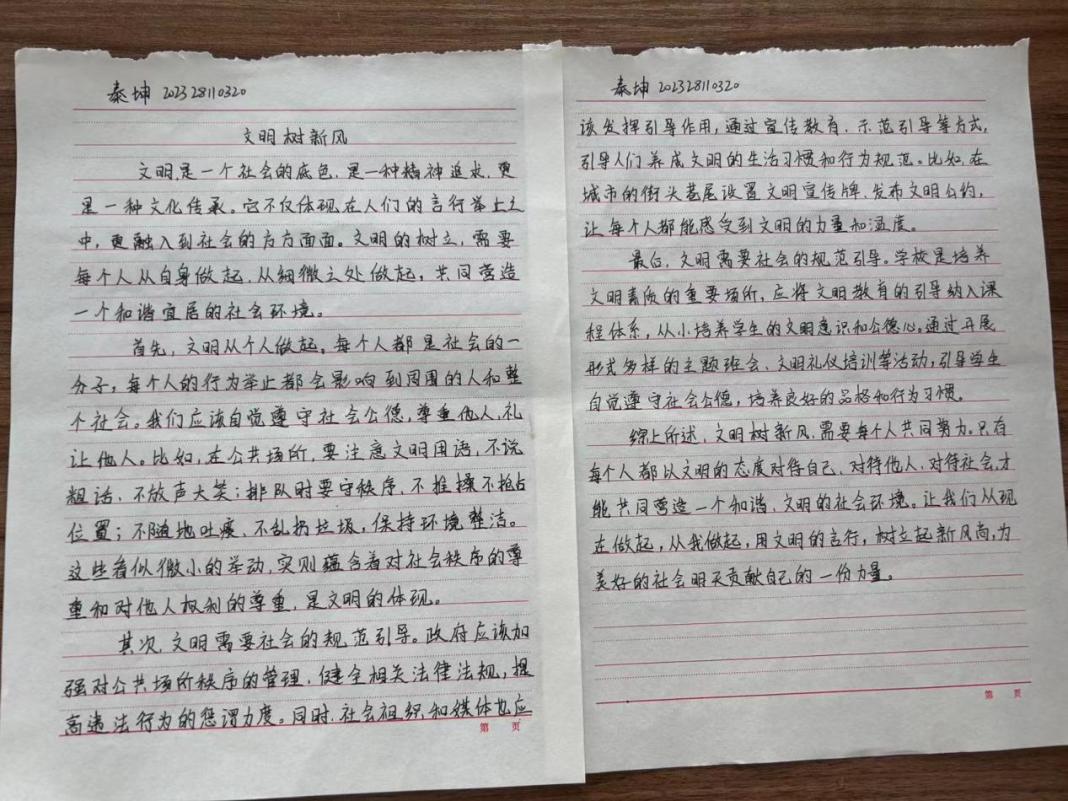 泰坤 202328110320
文明树新风
文明,是一个社会的底色,是一种精神追求,更
是一种文化传承。它不仅体现在人们的言行举止之
中,更融入到社会的方方面面。文明的树立,需要
每个人从自身做起,从细微之处做起,共同营造
一个和谐宜居的社会环境。
首先,文明从个人做起。每个人都是社会的一
分子,每个人的行为举止都会影响到周围的人和整
个社会。我们应该自觉遵守社会公德,尊重他人,礼
让他人。比如,在公共场所,要注意文明用语,不说
粗话,不放声大笑;排队时要守秩序,不推搡不抢占
位置;不随地吐痰、不乱扔垃圾,保持环境整洁。
这些看似微小的举动,实则蕴含着对社会秩序的尊
重和对他人权利的尊重,是文明的体现。
其次,文明需要社会的规范引导。政府应该加
强对公共场所秩序的管理,健全相关法律法规,提
高违法行为的惩谓力度。同时,社会组织和媒体也应
第 页
泰坤 202328110320
该发挥引导作用,通过宣传教育、示范引导等方式,
引导人们养成文明的生活习惯和行为规范。比如,在
城市的街头巷尾设置文明宣传牌、发布文明公约,
让每个人都能感受到文明的力量和温度。
最后,文明需要社会的规范引导。学校是培养
文明素质的重要场所,应将文明教育的引导纳入课
程体系,从小培养学生的文明意识和公德心。通过开展
形式多样的主题班会、文明礼仪培训等活动,引导学生
自觉遵守社会公德,培养良好的品格和行为习惯。
综上所述,文明树新风,需要每个人共同努力。只有
每个人都以文明的态度对待自己,对待他人,对待社会,才
能共同营造一个和谐、文明的社会环境。让我们从现
在做起,从我做起,用文明的言行,树立起新风尚,为
美好的社会明天贡献自己的一份力量。
第 页